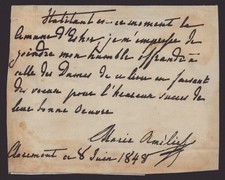 Habitant en ce moment la
Commune d'Esher je m'empresse de
joindre mon humble offrande à
celle des Dames de ce lieu en faisant
des voeux pour l'heureux succès de
leur bonne Oeuvre
Marie Amélie
Claremont ce 8 Juin 1848